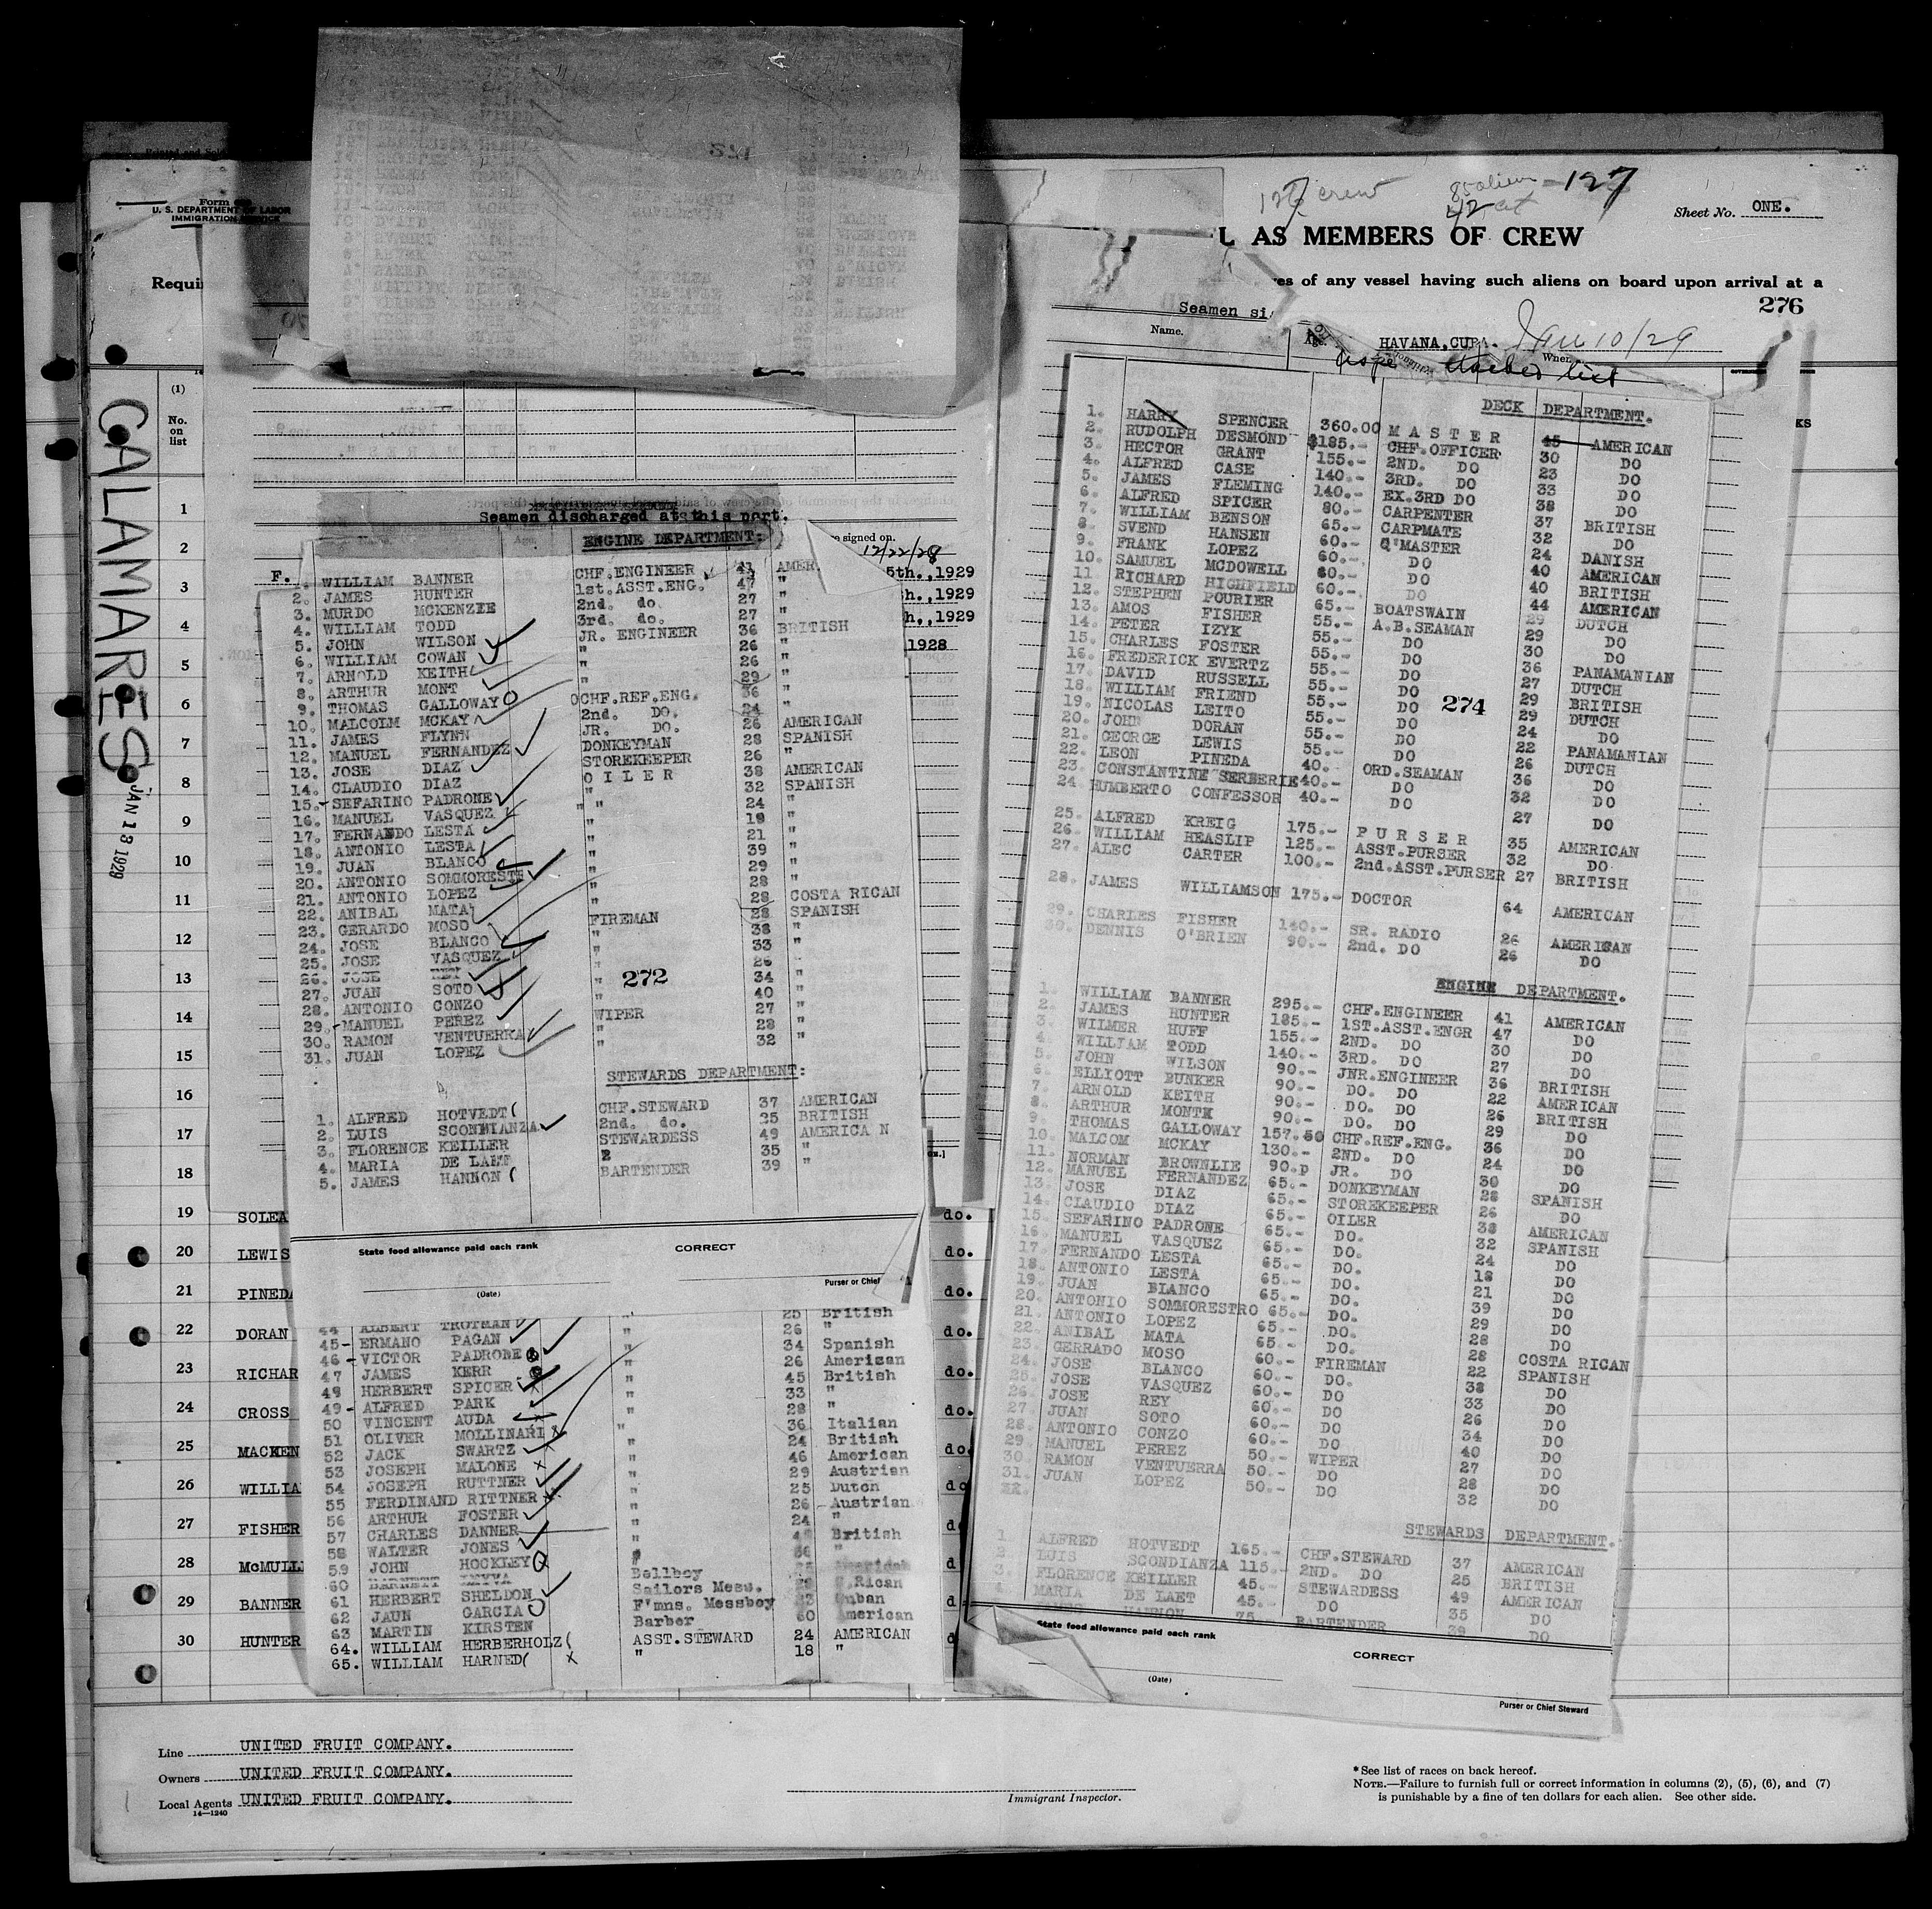 127 crew
127
Sheet No. ONE.
Form
U. S. DEPARTMENT OF LABOR
IMMIGRATION SERVICE
L AS MEMBERS OF CREW
Requi
es of any vessel having such aliens on board upon arrival at a
276
Seamen si
Name.
Age.
HAVANA, CUBA. Jan 10/29
When
(1)
No.
on
list
CALAMARES
JAN 13 1929
1
2
3
4
5
6
7
8
9
10
11
12
13
14
15
16
17
18
19 SOLEA
20 LEWIS
21 PINEDA
22 DORAN
23 RICHAR
24 CROSS
25 MACKEN
26 WILLIA
27 FISHER
28 McMULL
29 BANNER
30 HUNTER
Seamen discharged at this port.
e signed on.
12/22/28
5th.,1929
h.,1929
h.,1929
1928
F.
ENGINE DEPARTMENT:
WILLIAM BANNER CHF.ENGINEER 41 AMER
2. JAMES HUNTER 1st.ASST.ENG. 47 "
3. MURDO MCKENZEE 2nd. do. 27 "
4. WILLIAM TODD 3rd. do. 27 "
5. JOHN WILSON JR. ENGINEER 36 BRITISH
6. WILLIAM COWAN " 26 "
7. ARNOLD KEITH " 26 "
8. ARTHUR MONT " 29 "
9. THOMAS GALLOWAY CHF.REF.ENG. 36 "
10. MALCOLM MCKAY 2nd. DO. 24 "
11. JAMES FLYNN JR. DO. 26 AMERICAN
12. MANUEL FERNANDEZ DONKEYMAN 28 SPANISH
13. JOSE DIAZ STOREKEEPER 26 "
14. CLAUDIO DIAZ OILER 38 AMERICAN
15. SEFARINO PADRONE " 32 SPANISH
16. MANUEL VASQUEZ " 24 "
17. FERNANDO LESTA " 18 "
18. ANTONIO LESTA " 21 "
19. JUAN BLANCO " 39 "
20. ANTONIO SOMMORESTE " 29 "
21. ANTONIO LOPEZ " 28 "
22. ANIBAL MATA " 28 COSTA RICAN
23. GERARDO MOSO FIREMAN 28 SPANISH
24. JOSE BLANCO " 38 "
25. JOSE VASQUEZ " 33 "
26. JOSE REY " 26 "
27. JUAN SOTO " 34 "
28. ANTONIO GONZO " 40 "
29. MANUEL PEREZ WIPER 27 "
30. RAMON VENTUERRA " 28 "
31. JUAN LOPEZ " 32 "
272
STEWARDS DEPARTMENT:
1. ALFRED HOTVEDT CHF.STEWARD 37 AMERICAN
2. LUIS SCONDIANZA 2nd. do. 25 BRITISH
3. FLORENCE KEILLER STEWARDESS 49 AMERICAN
4. MARIA DE LAET " 35 "
5. JAMES HANNON BARTENDER 39 "
State food allowance paid each rank
CORRECT
(Date)
Purser or Chief
44 ALBERT TROTMAN " 25 British
45 ERMANO PAGAN " 26 "
46 VICTOR PADRONE " 34 Spanish
47 JAMES KERR " 26 American
48 HERBERT SPICER " 45 British
49 ALFRED PARK " 33 "
50 VINCENT AUDA " 28 "
51 OLIVER MOLLINARI " 36 Italian
52 JACK SWARTZ " 24 British
53 JOSEPH MALONE " 46 American
54 JOSEPH RUTTNER " 29 Austrian
55 FERDINAND RITTNER " 25 Dutch
56 ARTHUR FOSTER " 26 Austrian
57 CHARLES DANNER " 24 "
58 WALTER JONES " British
59 JOHN HOCKLEY " "
60 Bellboy
61 HERBERT SHELDON Sailors Mess. Rican
62 JAUN GARCIA F'mns. Messboy Cuban
63 MARTIN KIRSTEN Barber 60 American
64. WILLIAM HERBERHOLZ ASST.STEWARD 24 AMERICAN
65. WILLIAM HARNED " 18 "
DECK DEPARTMENT.
1. HARRY SPENCER 360.00 MASTER 45 AMERICAN
2. RUDOLPH DESMOND $185.- CHF.OFFICER 30 DO
3. HECTOR GRANT 155.- 2ND. DO 23 DO
4. ALFRED CASE 140.- 3RD. DO 33 DO
5. JAMES FLEMING 140.- EX.3RD DO 38 DO
6. ALFRED SPICER 80.- CARPENTER 37 BRITISH
7. WILLIAM BENSON 65.- CARPMATE 32 DO
8. SVEND HANSEN 60.- Q'MASTER 24 DANISH
9. FRANK LOPEZ 60.- DO 40 AMERICAN
10. SAMUEL MCDOWELL 60.- DO 40 BRITISH
11 RICHARD HIGHFIELD 60.- DO 44 AMERICAN
12. STEPHEN POURIER 65.- BOATSWAIN 29 DUTCH
13. AMOS FISHER 55.- A.B.SEAMAN 29 DO
14. PETER IZYK 55.- DO 30 DO
15. CHARLES FOSTER 55.- DO 36 PANAMANIAN
16. FREDERICK EVERTZ 55.- DO 27 DUTCH
17. DAVID RUSSELL 55.- DO 29 BRITISH
18. WILLIAM FRIEND 55.- DO 29 DUTCH
19. NICOLAS LEITO 55.- DO 24 DO
20. JOHN DORAN 55.- DO 22 PANAMANIAN
21. GEORGE LEWIS 55.- DO 26 DUTCH
22. LEON PINEDA 40.- ORD.SEAMAN 36 DO
23. CONSTANTINE SERBERIE 40.- DO 32 DO
24. HUMBERTO CONFESSOR 40.- DO 27 DO
274
25. ALFRED KREIG 175.- PURSER 35 AMERICAN
26. WILLIAM HEASLIP 125.- ASST.PURSER 32 DO
27. ALEC CARTER 100.- 2nd.ASST.PURSER 27 BRITISH
28. JAMES WILLIAMSON 175.- DOCTOR 64 AMERICAN
29. CHARLES FISHER 140.- SR. RADIO 26 AMERICAN
30. DENNIS O'BRIEN 90.- 2nd. DO 26 DO
ENGINE DEPARTMENT.
1. WILLIAM BANNER 295.- CHF.ENGINEER 41 AMERICAN
2. JAMES HUNTER 185.- 1ST.ASST.ENGR 47 DO
3. WILMER HUFF 155.- 2ND. DO 30 DO
4. WILLIAM TODD 140.- 3RD. DO 27 DO
5. JOHN WILSON 90.- JNR.ENGINEER 36 BRITISH
6. ELLIOTT BUNKER 90.- DO. DO 22 AMERICAN
7. ARNOLD KEITH 90.- DO. DO 26 BRITISH
8. ARTHUR MONTK 90.- DO. DO 29 DO
9. THOMAS GALLOWAY 157.50 CHF.REF.ENG. 36 DO
10. MALCOM MCKAY 130.- 2ND. DO 24 DO
11. NORMAN BROWNLIE 90.p JR. DO 30 DO
12. MANUEL FERNANDEZ 65.- DONKEYMAN 28 SPANISH
13. JOSE DIAZ 65.- STOREKEEPER 26 DO
14. CLAUDIO DIAZ 65.- OILER 38 AMERICAN
15. SEFARINO PADRONE 65.- DO. 32 SPANISH
16. MANUEL VASQUEZ 65.- DO. 24 DO
17. FERNANDO LESTA 65.- DO. 18 DO
18. ANTONIO LESTA 65.- DO. 21 DO
19. JUAN BLANCO 65.- DO. 39 DO
20. ANTONIO SOMMORESTRO 65.- DO. 29 DO
21. ANTONIO LOPEZ 65.- DO. 28 DO
22. ANIBAL MATA 65.- DO. 28 COSTA RICAN
23. GERRADO MOSO 60.- FIREMAN 22 SPANISH
24. JOSE BLANCO 60.- DO. 38 DO
25. JOSE VASQUEZ 60.- DO 33 DO
26. JOSE REY 60.- DO 26 DO
27. JUAN SOTO 60.- DO 34 DO
28. ANTONIO CONZO 60.- DO 40 DO
29. MANUEL PEREZ 50.- WIPER 27 DO
30. RAMON VENTUERRA 50.- DO 28 DO
31. JUAN LOPEZ 50.- DO 32 DO
STEWARDS DEPARTMENT.
1 ALFRED HOTVEDT 165.- CHF.STEWARD 37 AMERICAN
2. LUIS SCONDIANZA 115.- 2ND. DO 25 BRITISH
3. FLORENCE KEILLER 45.- STEWARDESS 49 AMERICAN
4. MARIA DE LAET 45.- DO 35 DO
JAMES HANNON 75. BARTENDER 39 DO
State food allowance paid each rank
CORRECT
(Date)
Purser or Chief Steward
Line UNITED FRUIT COMPANY.
Owners UNITED FRUIT COMPANY.
Local Agents UNITED FRUIT COMPANY.
14—1240
Immigrant Inspector.
*See list of races on back hereof.
NOTE.—Failure to furnish full or correct information in columns (2), (5), (6), and (7)
is punishable by a fine of ten dollars for each alien. See other side.